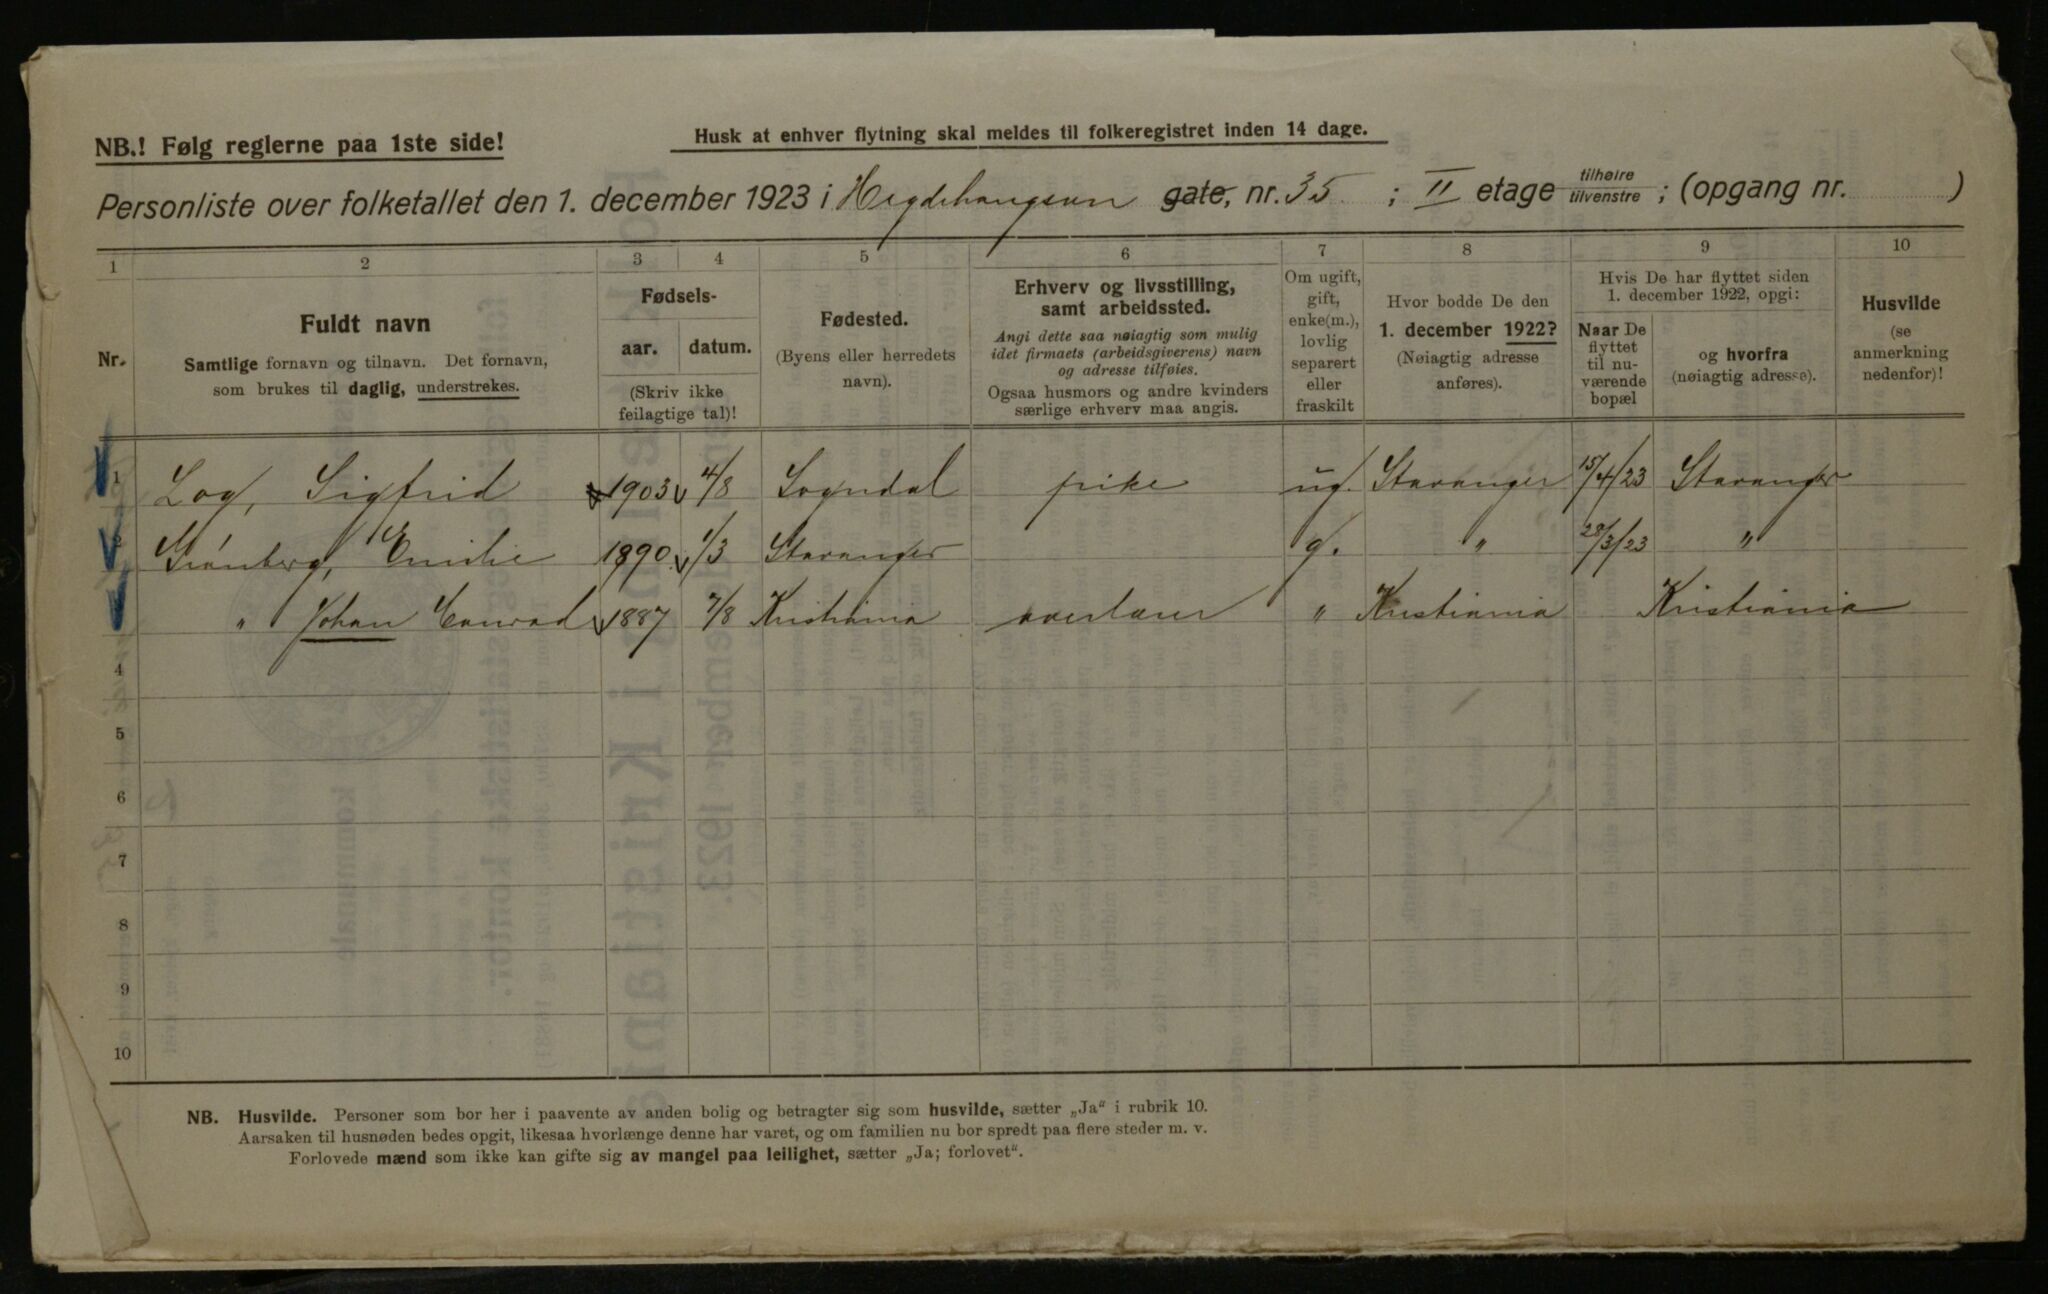 NB.! Følg reglerne paa 1ste side!
Husk at enhver flytning skal meldes til folkeregistret inden 14 dage.
Personliste over folketallet den 1. december 1923 i Hegdehaugsvn gate, nr. 35 ; II etage tilhøire tilvenstre ; (opgang nr. )
1 2 3 4 5 6 7 8 9 10
Nr.
Fuldt navn
Samtlige fornavn og tilnavn. Det fornavn,
som brukes til daglig, understrekes.
Fødsels-
aar. datum.
(Skriv ikke
feilagtige tal)!
Fødested.
(Byens eller herredets
navn).
Erhverv og livsstilling,
samt arbeidssted.
Angi dette saa nøiagtig som mulig
idet firmaets (arbeidsgiverens) navn
og adresse tilføies.
Ogsaa husmors og andre kvinders
særlige erhverv maa angis.
Om ugift,
gift,
enke(m.),
lovlig
separert
eller
fraskilt
Hvor bodde De den
1. december 1922?
(Nøiagtig adresse
anføres).
Hvis De har flyttet siden
1. december 1922, opgi:
Naar De
flyttet
til nu-
værende
bopæl
og hvorfra
(nøiagtig adresse).
Husvilde
(se
anmerkning
nedenfor)!
1 Log, Sigfrid 1903 4/8 Sogndal pike ug. Stavanger 15/4/23 Stavanger
2 Grønberg, Emilie 1890 1/3 Stavanger g. " 28/3/23 "
" Johan Conrad 1887 7/8 Kristiania overlærer " Kristiania Kristiania
4
5
6
7
8
9
10
NB. Husvilde. Personer som bor her i paavente av anden bolig og betragter sig som husvilde, sætter „Ja" i rubrik 10.
Aarsaken til husnøden bedes opgit, likesaa hvorlænge denne har varet, og om familien nu bor spredt paa flere steder m. v.
Forlovede mænd som ikke kan gifte sig av mangel paa leilighet, sætter „Ja; forlovet".